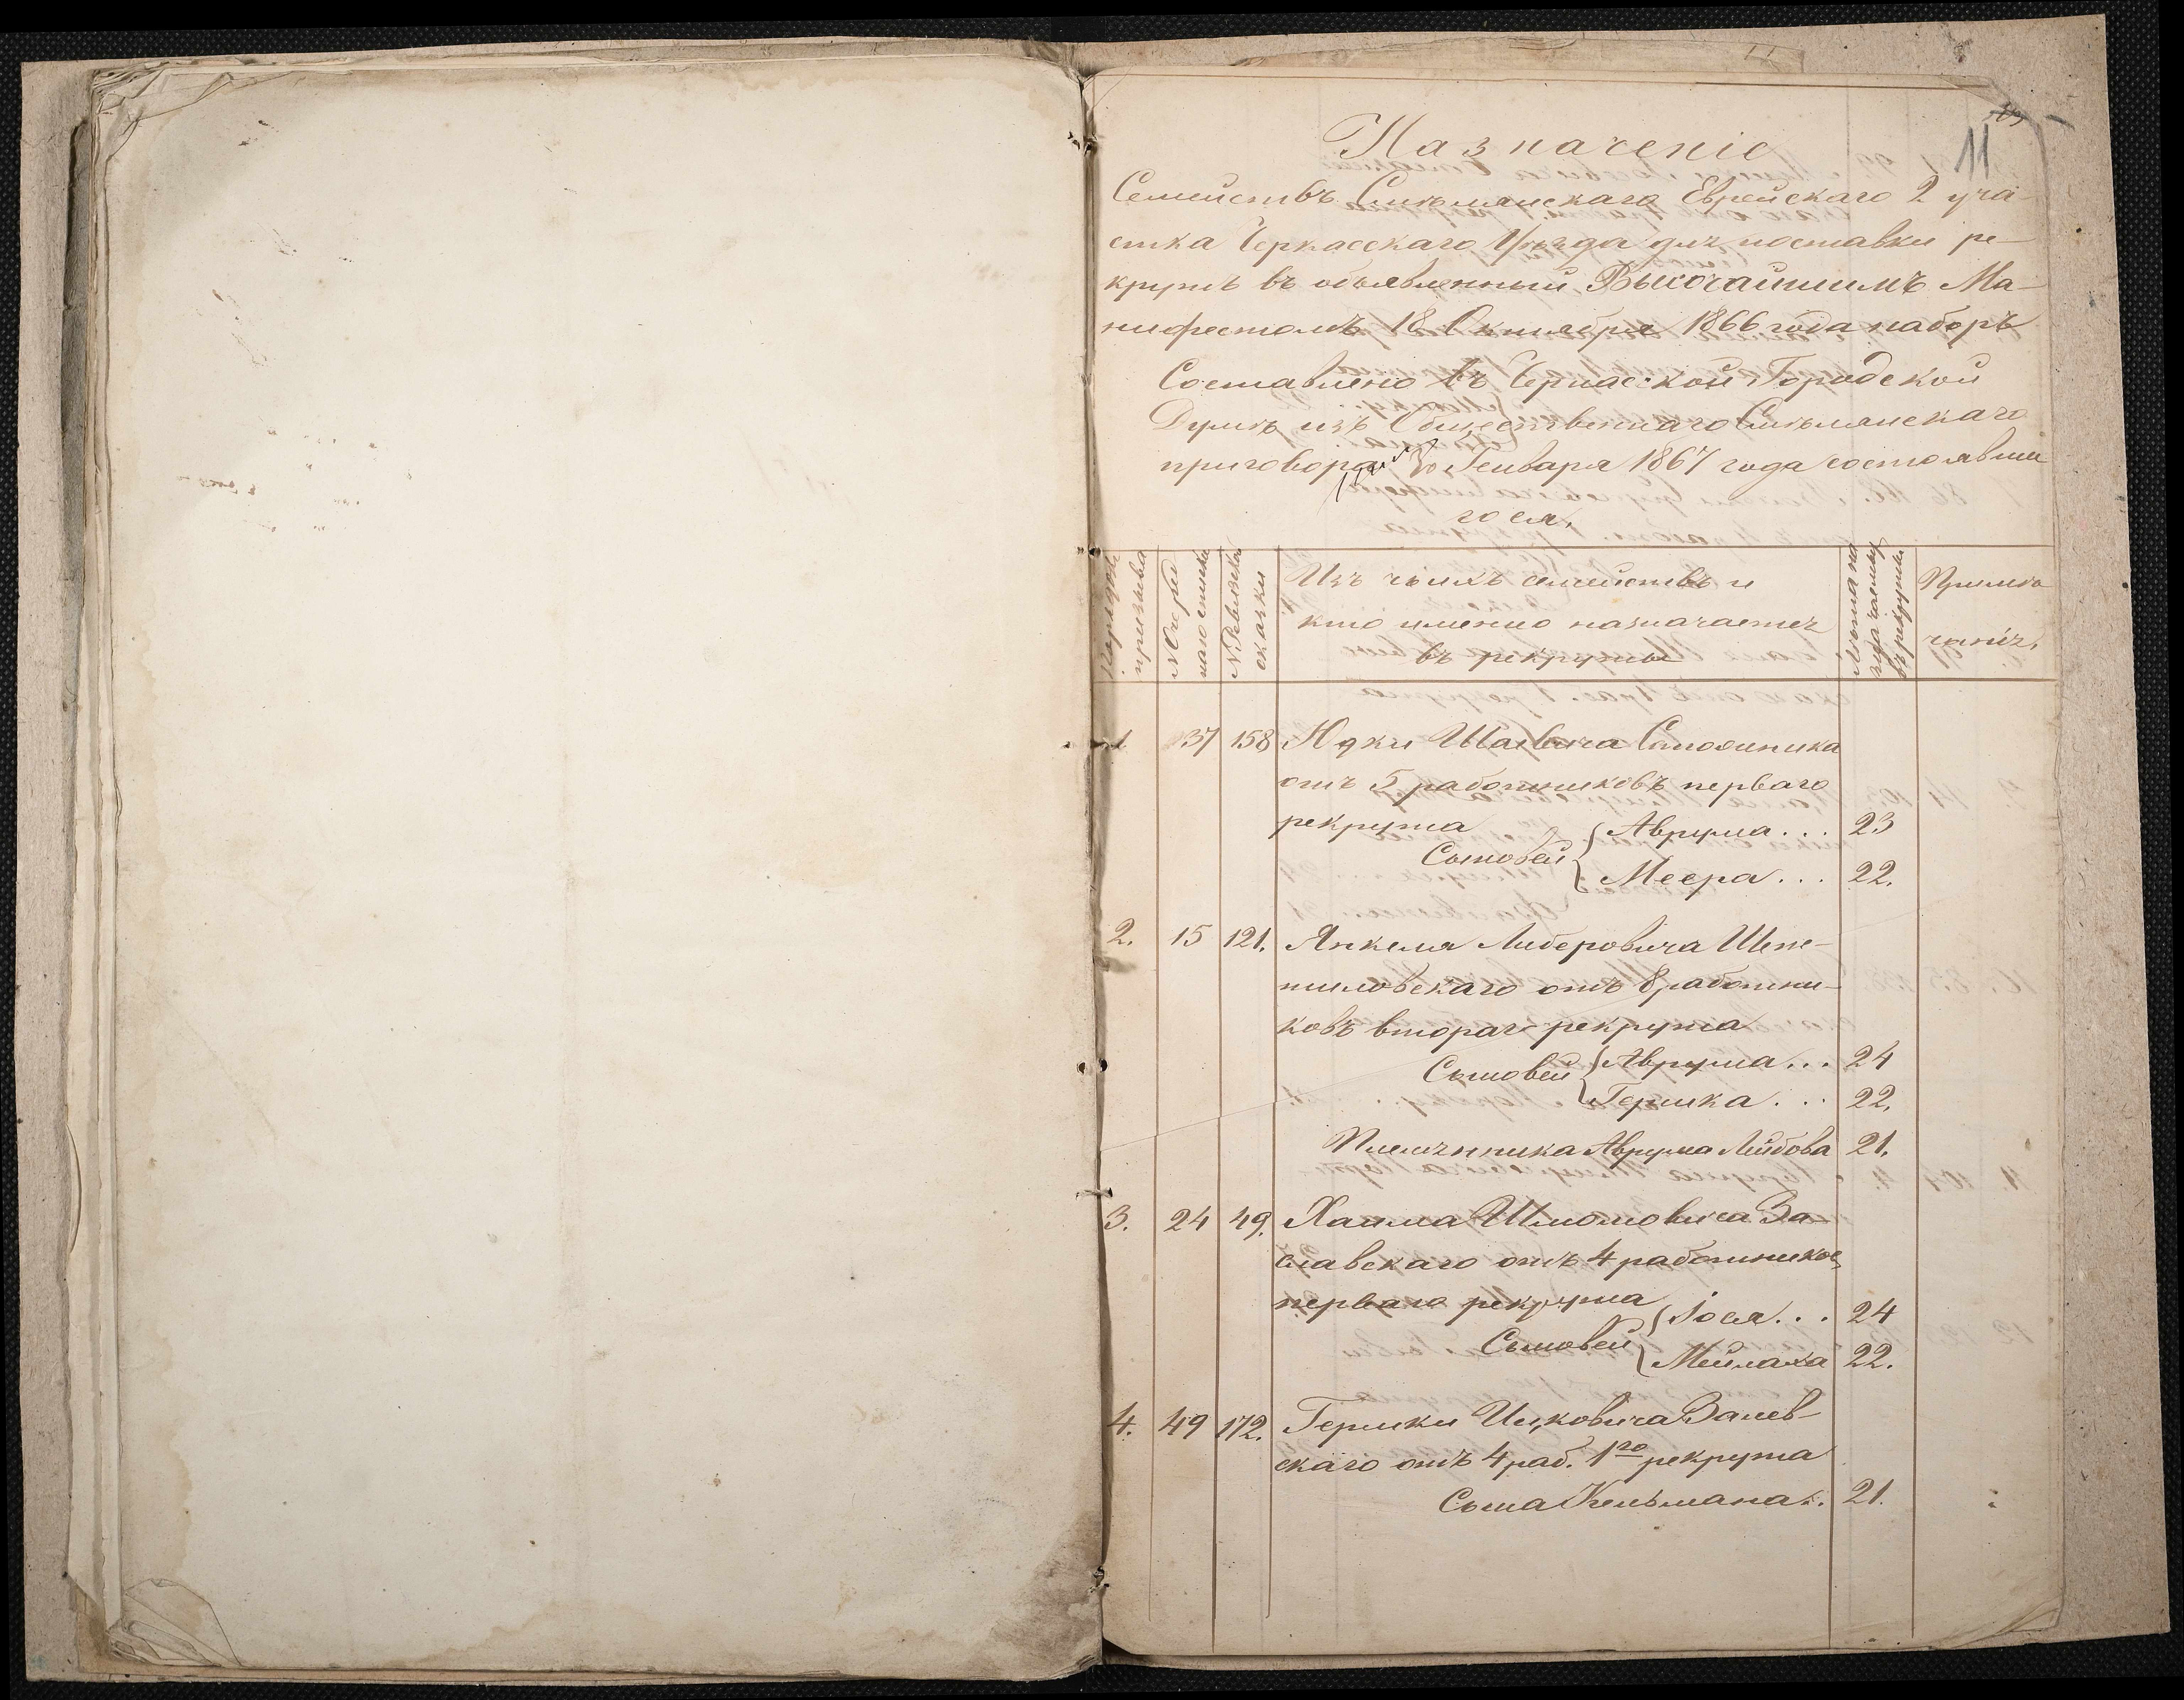 11
Назначеніе
Семействъ Смѣлянскаго Еврейскаго 2 уча-
стка Черкасскаго Уѣзда для поставки ре-
крутъ въ объявленный Высочайшимъ Ма-
нифестомъ 18 Октября 1866 года наборъ
Составлено въ Черкасской Городской
Думѣ изъ Общественнаго Смѣлянскаго
приговора 30 Генваря 1867 года состоявша
гося.
призыва
№ Очеред
наго списка
№ Ревизской
сказки
Изъ чьихъ семействъ и
кто именно назначается
въ рекруты
Лѣта на
значаемыхъ
въ рекруты
Примѣ
чанія.
1 37 158 Юдки Шаевича Стоянника
отъ 5 работниковъ перваго
рекрута
Сыновей { Аврума... 23
Меера... 22.
2. 15 121. Янкеля Либеровича Шепе-
тиловскаго отъ 8 работни-
ковъ втораго рекрута
Сыновей { Аврума... 24
Гершка... 22.
Племянника Аврума Лейбова 21.
3. 24 49. Хаима Шмоновича За
славскаго отъ 4 работников
перваго рекрута
Сыновей { Іося... 24
Мейлаха 22.
4. 49 172. Гершки Ицковича Залев-
скаго отъ 4 раб. 1го рекрута
Сына Кельмана.. 21.